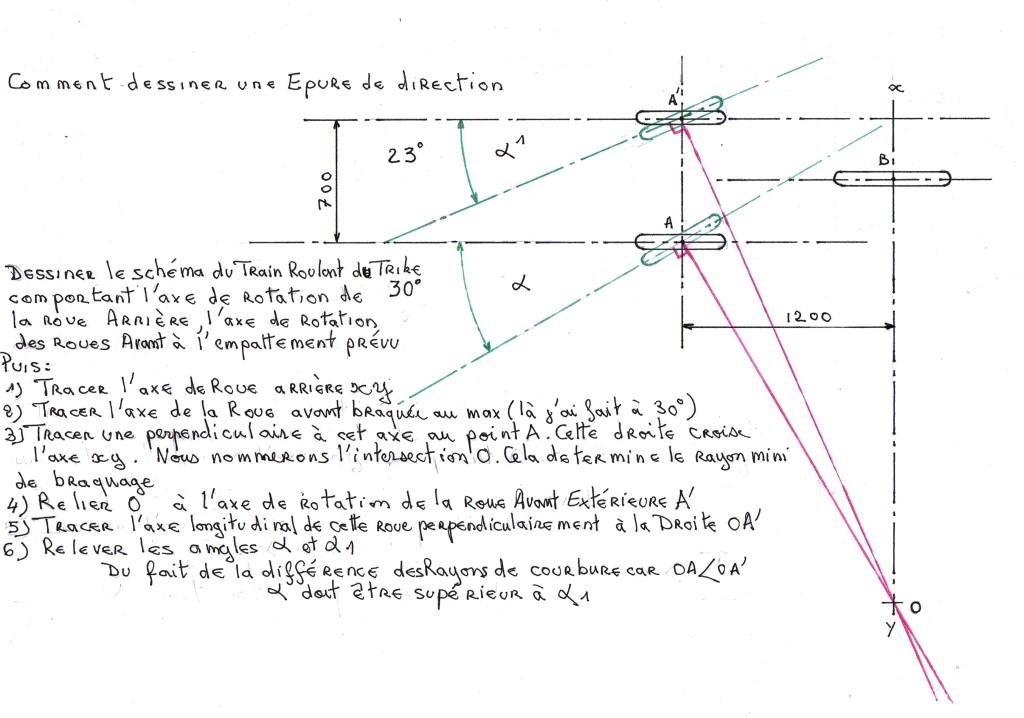 Comment dessiner une Epure de direction
A'
x
23°
α1
B
700
A
Dessiner le schéma du Train Roulant du Trike
30°
α
comportant l'axe de Rotation de
la roue Arrière, l'axe de Rotation
1200
des roues Avant à l'empattement prévu
Puis:
1) Tracer l'axe de Roue arrière xy
2) Tracer l'axe de la Roue avant braquée au max (là j'ai fait à 30°)
3) Tracer une perpendiculaire à cet axe au point A. Cette droite croise
l'axe xy. Nous nommerons l'intersection O. Cela determine le rayon mini
de braquage
4) Relier O à l'axe de rotation de la roue Avant Extérieure A'
5) Tracer l'axe longitudinal de cette roue perpendiculairement à la Droite OA'
6) Relever les angles α et α1
Du fait de la différence des Rayons de courbure car OA<OA'
α doit être supérieur à α1
O
Y